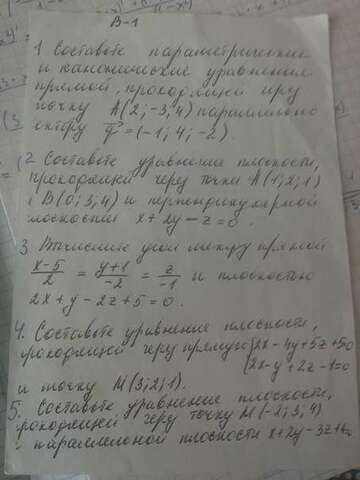 В-1
1 Составьте параметрические
и канонические уравнения
прямой, проходящей через
точку A(2; -3; 4) параллельно
вектору q = (-1; 4; -2).
2 Составьте уравнение плоскости,
проходящей через точки A(1; 2; 1)
и B(0; 3; 4) и перпендикулярной
плоскости x + 2y - z = 0.
3 Вычислите угол между прямой
(x-5)/2 = (y+1)/-2 = z/-1 и плоскостью
2x + y - 2z + 5 = 0.
4. Составьте уравнение плоскости,
проходящей через прямую {2x - 4y + 5z + 5 = 0
{2x - y + 2z - 1 = 0
и точку M(3; 2; 1).
5. Составьте уравнение плоскости,
проходящей через точку M(-2; 3; 4)
и параллельной плоскости x + 2y - 3z +